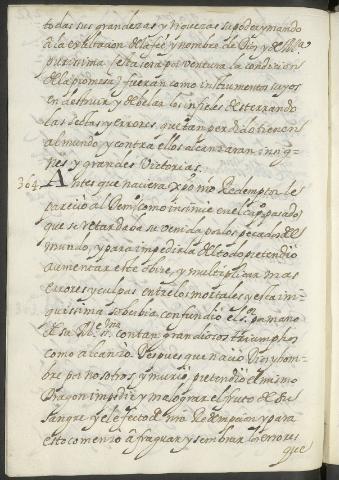 todas sus grandezas y riquezas su poder y mando
a la exaltacion de la fee y nombre de Dios y de Mª
purissima
fueran como instrumentos suyos
en destruir y debelar los infieles desterrando
las sectas y errores que tan perdido tienen
al mundo, y contra ellos alcançaran insig-
nes y grandes Victorias.
364. Antes que naciera Xpo nro Redemptor le
parecio al Demº como insinue en el capº pasado
que se retardase su venida por los pecados del
mundo, y para impedirla del todo pretendio
aumentar este obice, y multiplicar mas
errores y culpas entre los mortales y esta ini-
quissima soberbia confundio el Sor por mano
de su Me ssma con tan grandiosos triumphos
como alcanzo. Despues que nacio Dios y hom-
bre por nosotros y murio, pretendio el mismo
Dragon impedir y malograr el fruto de su
Sangre y el efecto de nra Redempcion y para
esto comenzo a fraguar y sembrar los errores
que